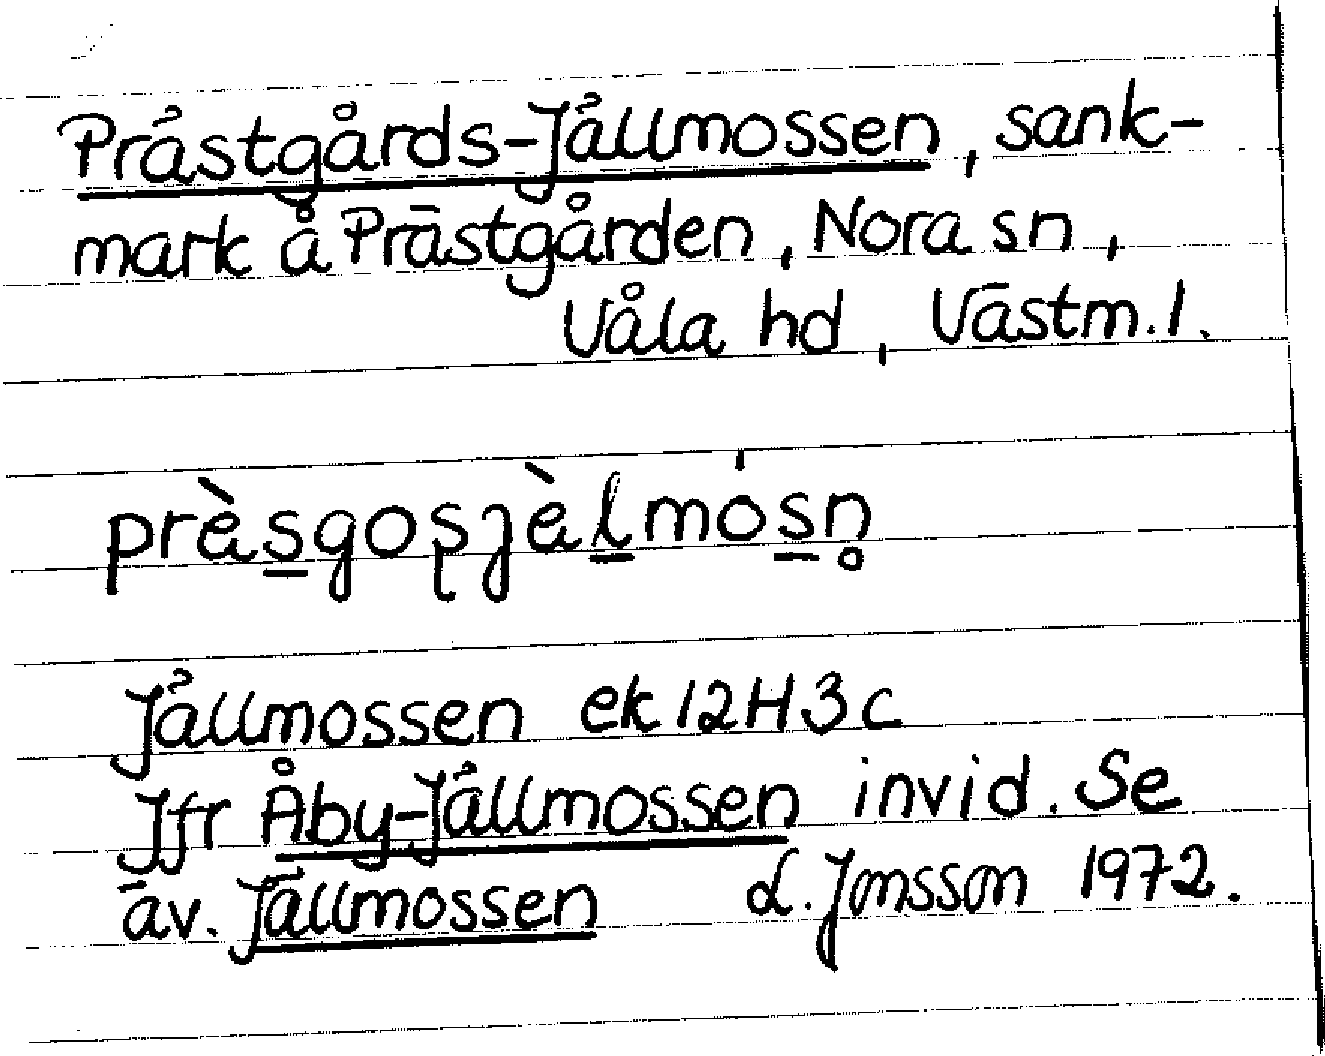 Prästgårds-Jällmossen, sank-
mark å Prästgården, Nora sn,
Våla hd, Västm. l.
prὲsgoʂjὲlmósn̥
Jällmossen ek 12H3c
Jfr Åby-Jällmossen invid. Se
äv. Jällmossen L. Jonsson 1972.